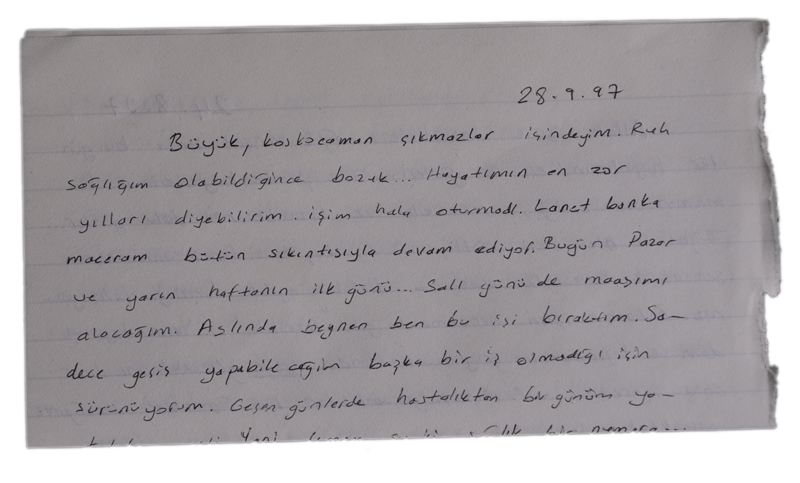 28.9.97
Büyük, koskocaman çıkmazlar içindeyim. Ruh
sağlığım olabildiğince bozuk... Hayatımın en zor
yılları diyebilirim. işim hala oturmadı. Lanet banka
maceram bütün sıkıntısıyla devam ediyor. Bugün Pazar
ve yarın haftanın ilk günü... Salı günü de maaşımı
alacağım. Aslında beynen ben bu işi bıraktım. Sa-
dece geçiş yapabileceğim başka bir iş olmadığı için
sürünüyorum. Geçen günlerde hastalıktan bir günüm ya-